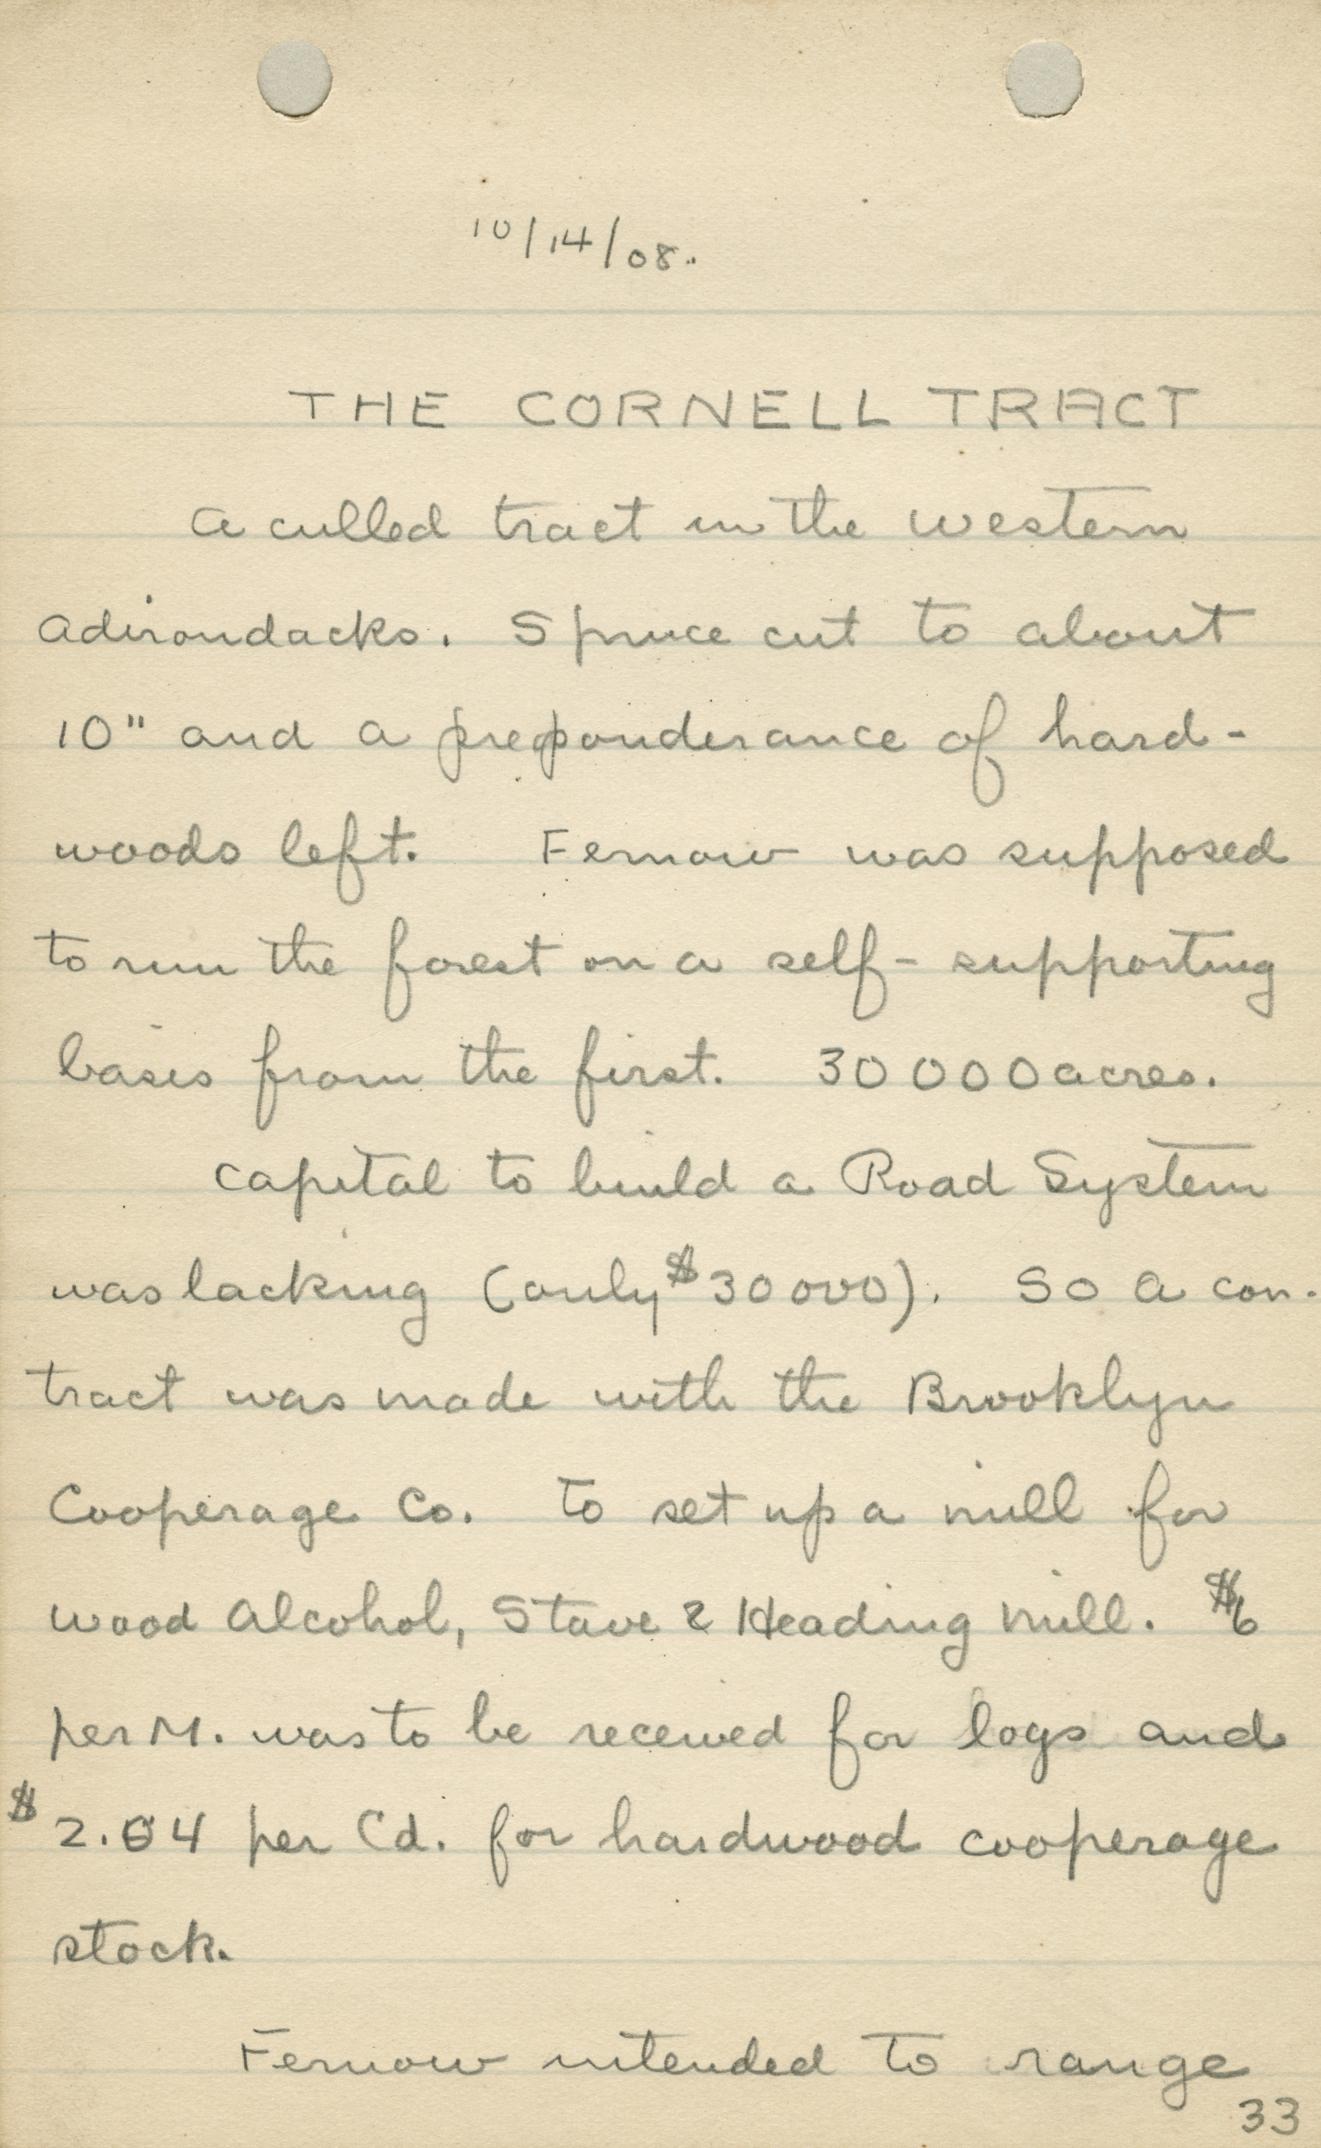 10/14/08.
THE CORNELL TRACT
A culled tract in the western
Adirondacks. Spruce cut to about
10" and a preponderance of hard-
woods left. Fernow was supposed
to run the forest on a self-supporting
basis from the first. 30 000 acres.
Capital to build a Road System
was lacking (only $30000). So a con-
tract was made with the Brooklyn
Cooperage Co. to set up a mill for
wood Alcohol, Stave & Heading mill. $6
per M. was to be received for logs and
$2.64 per Cd. for hardwood cooperage
stock.
Fernow intended to range
33